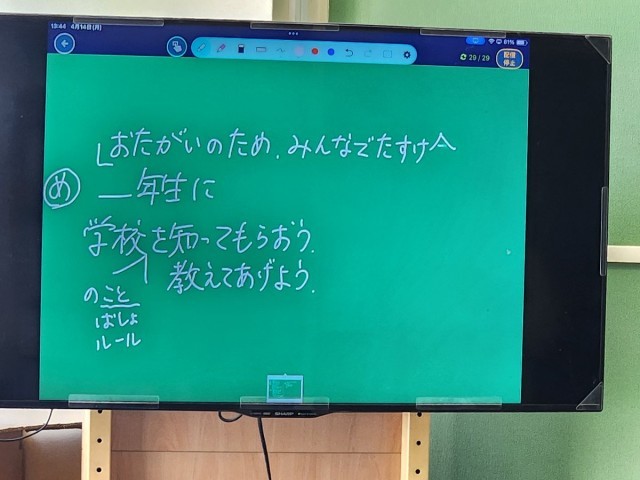 13:44 4月14日(月)
81%
29 / 29
配信
停止
おたがいのため、みんなでたすけ
め 一年生に
学校を知ってもらおう。
教えてあげよう。
のこと
ばしょ
ルール
SHARP